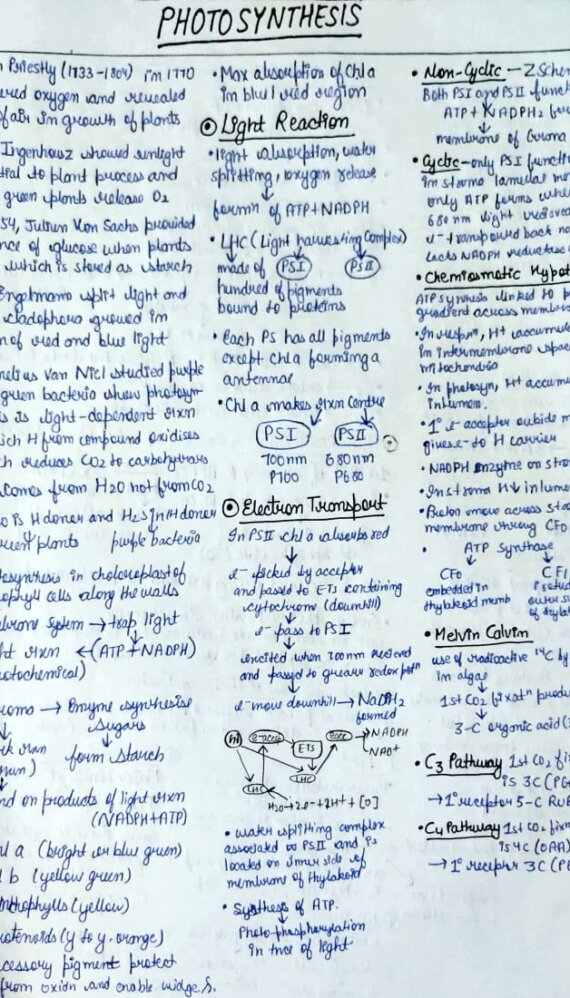 PHOTOSYNTHESIS
n Priestly (1733-1804) im 1770
ered oxygen and revealed
of air in growth of plants
Ingenhousz showed sunlight
tial to plant process and
green plants release O2
54, Julius Von Sachs provided
nce of glucose when plants
which is stored as starch
Engelmann split light and
cladophora growed in
n of red and blue light
nelius van Niel studied purple
green bacteria show photosyn-
is is light-dependent rxn
ich H from compound oxidises
ch reduces CO2 to carbohydrates
comes from H2O not from CO2
O is H donor and H2S is H donor
green plants purple bacteria
osynthesis in chloroplast of
ophyll cells along the walls
mbrane system → trap light
ht rxn ← (ATP + NADPH)
otochemical)
roma → Enzyme synthesise
sugars
rk rxn form starch
nd on products of light rxn
(NADPH+ATP)
l a (bright or blue green)
l b (yellow green)
nthophylls (yellow)
rotenoids (y to y-orange)
cessory pigment protect
from oxidn and enable widge s.
• Max absorption of Chl a
im blu & red region
Light Reaction
• light absorption, water
splitting, oxygen release
formn of ATP+NADPH
• LHC (Light harvesting Complex)
made of PSI PSII
hundred of pigments
bound to proteins
• Each PS has all pigments
except chl a forming a
antennae
• Chl a makes rxn Centre
PSI PSII
700nm 680nm
P700 P680
Electron Transport
In PSII chl a absorbs red
e- picked by acceptor
and passed to ETS containing
cytochrome (downhill)
e- pass to PSI
excited when 700nm recieved
and passed to greater redox potn
e- move downhill → NADH2
formed
e- acce
ETS
→ NADPH
NAD+
LHC
LHC
H2O→2e-+2H++[O]
• water splitting complex
associated to PSII and is
located on inner side of
membrane of thylakoid
• Synthesis of ATP.
Photo-phosphorylation
in pnce of light
• Non-Cyclic - Z Schem
Both PSI and PSII funct
ATP + NADPH2 for
membrane of Grana
• Cyclic - only PSI functio
im stroma lamellae m
only ATP forms when
680nm light recieved
e- transported back no
lacks NADPH reductase
• Chemiosmotic Hypot
ATP synthesis linked to p
gradient across membra
• In respirn, H+ accumula
im intermembrane space
mitochondria
• In photosyn, H+ accum
in lumen.
• 1° e- acceptor outside m
gives e- to H carrier
• NADPH enzyme on stro
• In stroma H↓ in lume
• Proton move across sta
membrane through CFO
• ATP synthase
CFO CF1
embedded in
thylakoid memb
outer su
of thylak
• Melvin Calvin
use of radioactive 14C by
im algae
1st CO2 fixatn produ
3-C organic acid (
• C3 Pathway 1st CO2 fix
is 3C (PG
→ 1° receptor 5-C RUB
• C4 Pathway 1st CO2 fixn
is 4C (OAA)
→ 1° receptor 3C (PE